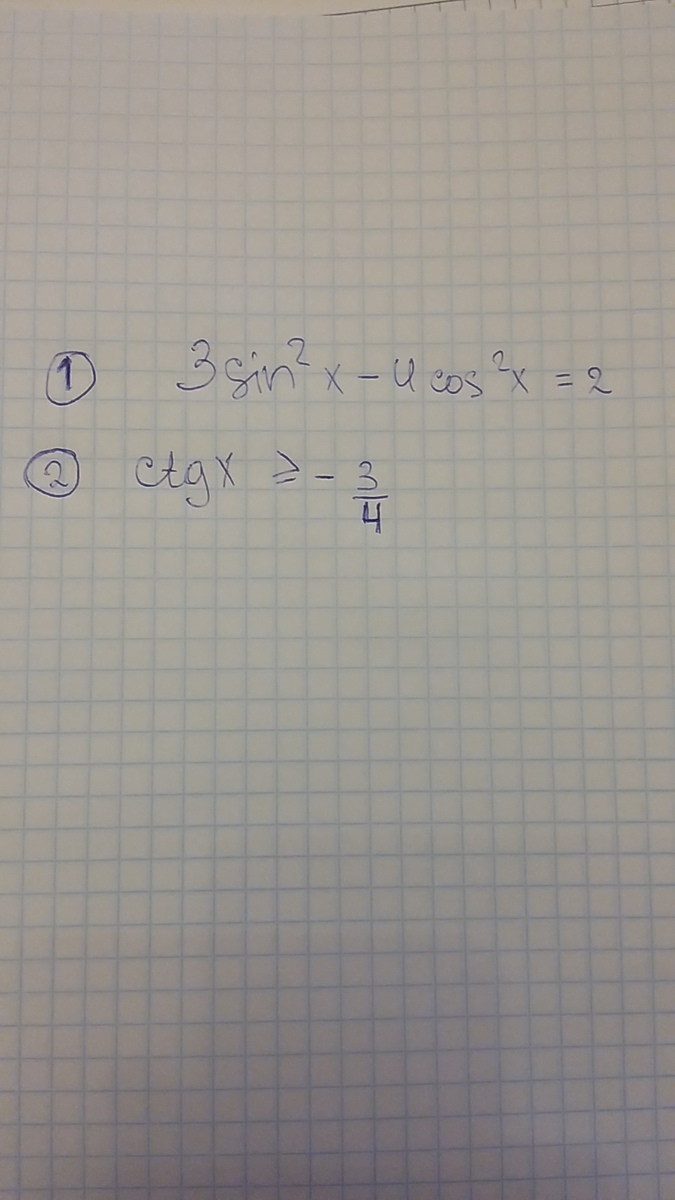 ① 3 sin²x - 4 cos²x = 2
② ctgx ≥ - 3/4